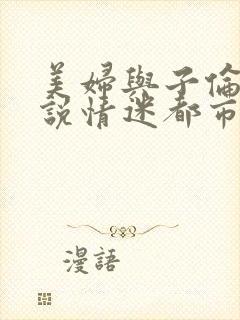 美婦與子倫
說情迷都市
漫語